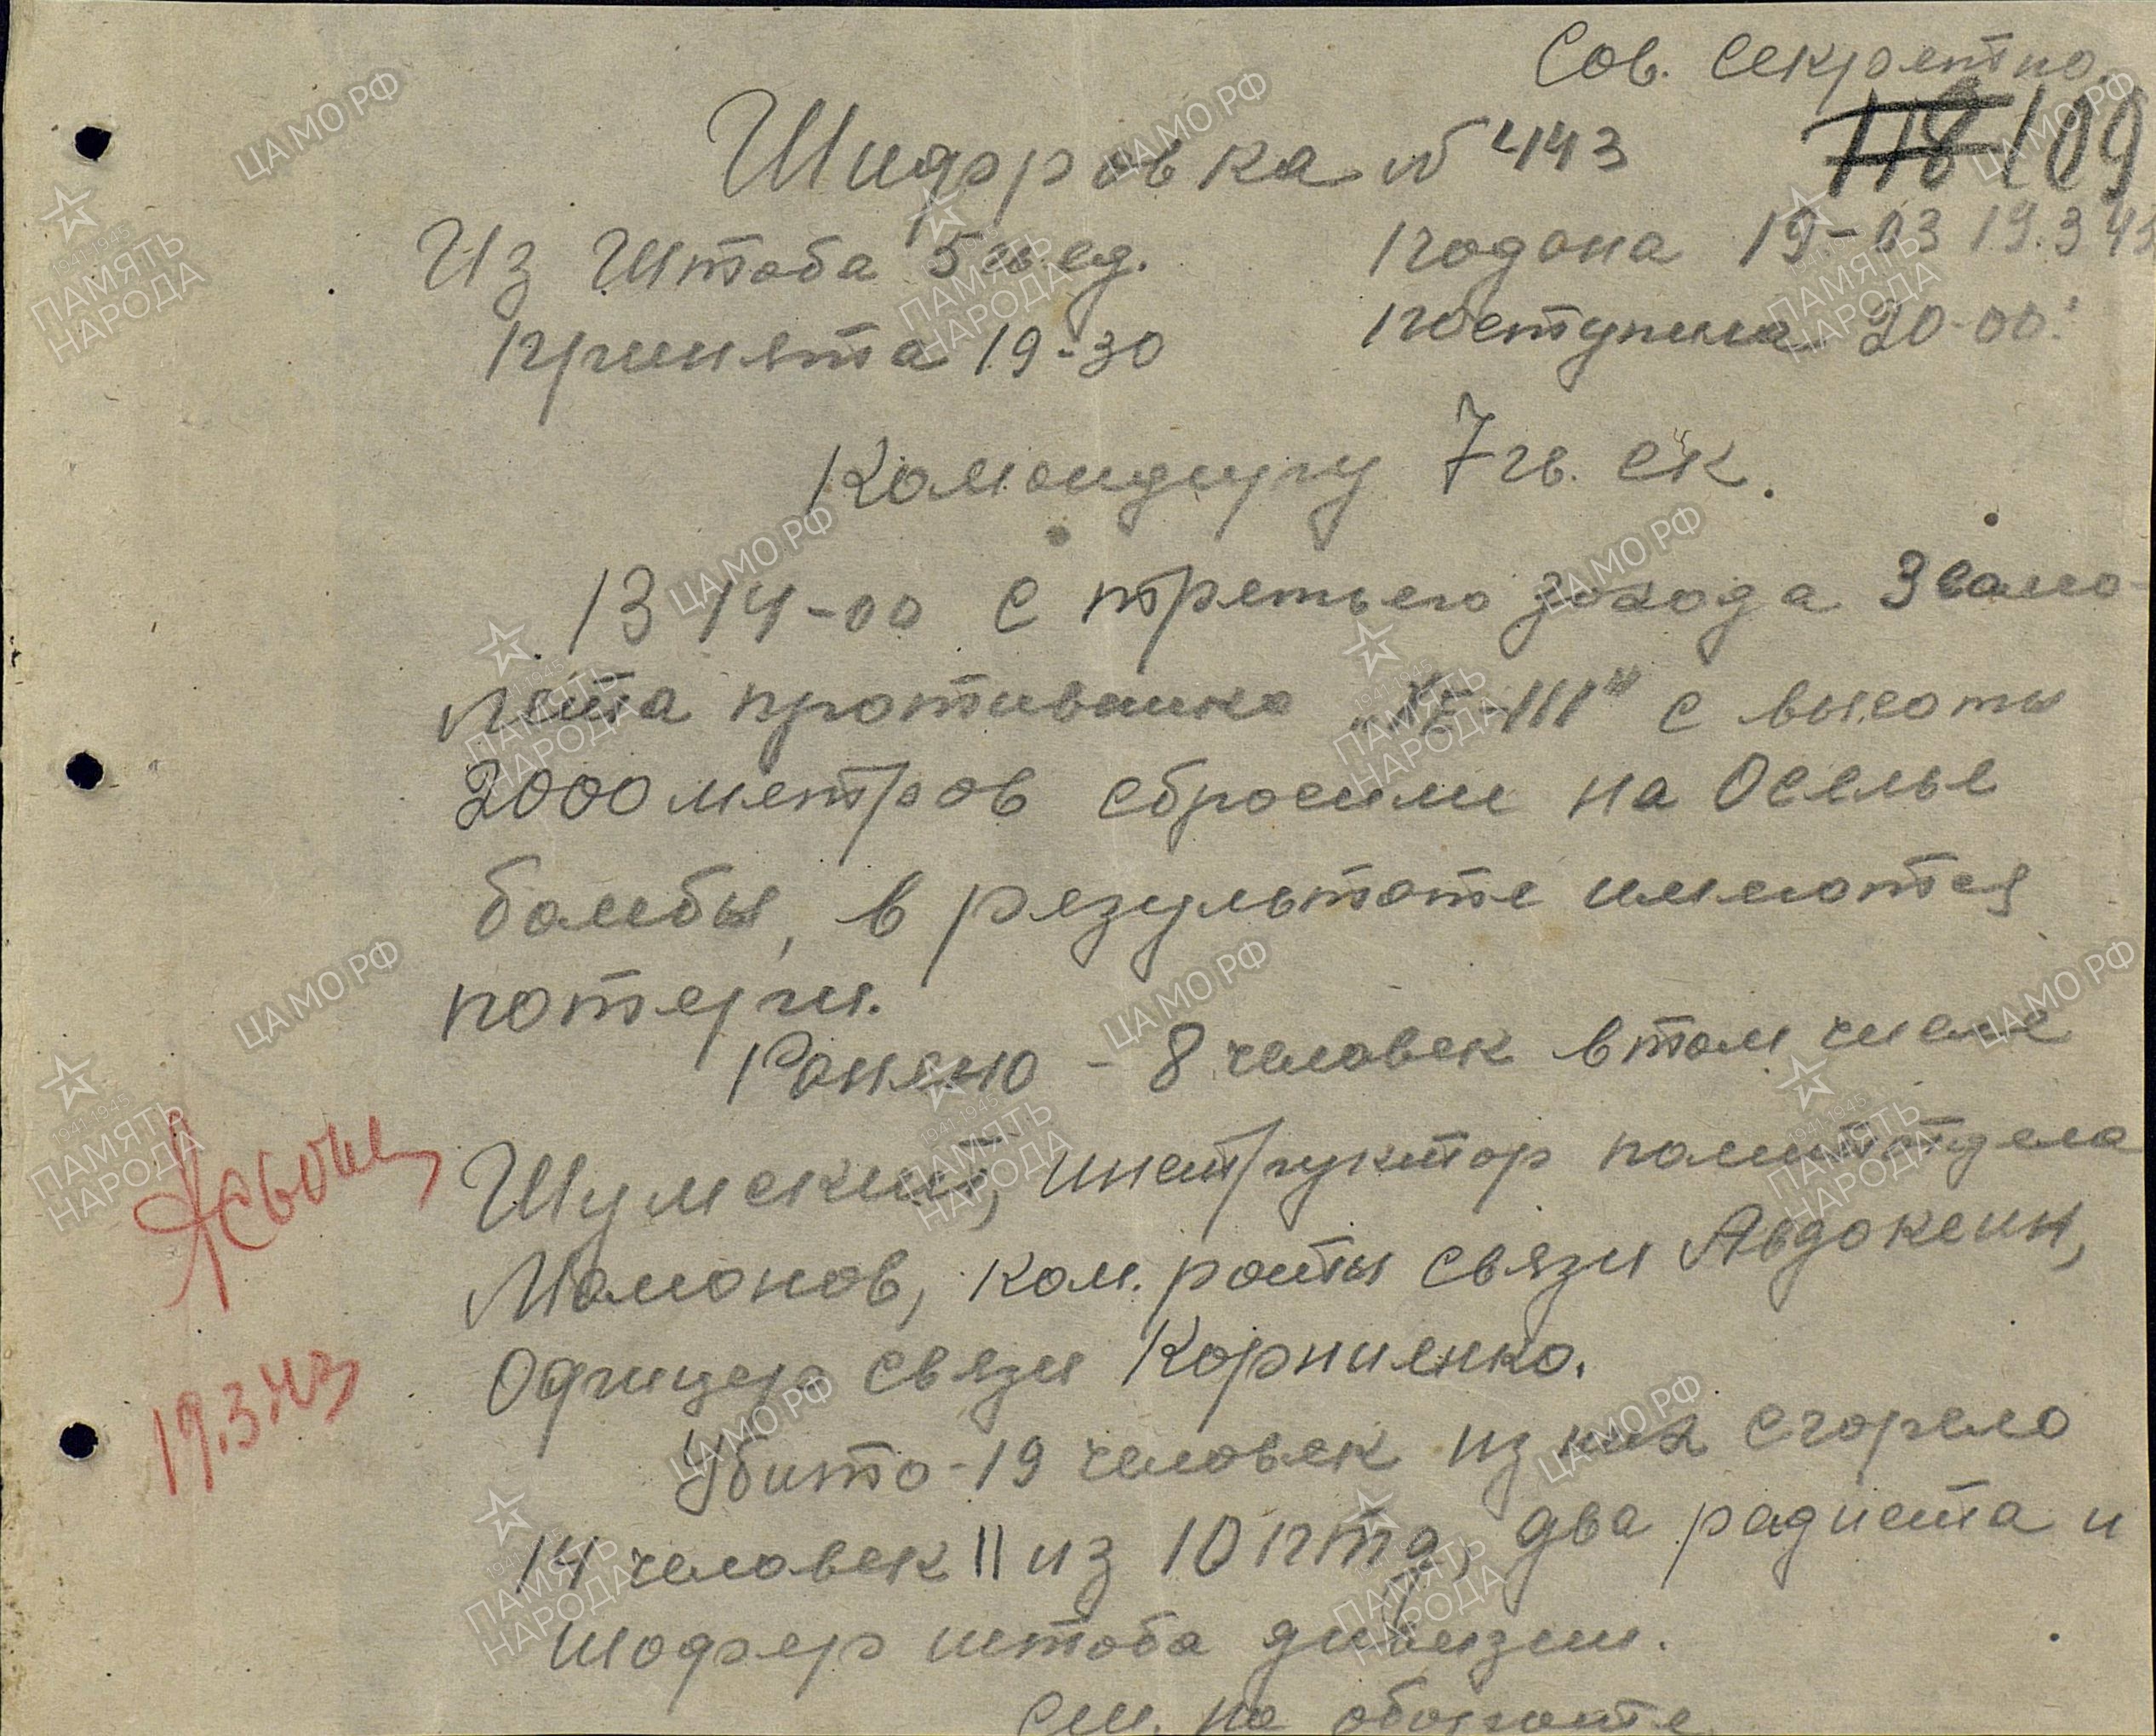 Сов. Секретно.
Шифровка № 443
118 109
Из Штаба 5 гв. сд.
подана 19-03 19.3 43
принята 19-30
поступила 20-00.
Командиру 7 гв. ск.
В 14-00 с третьего захода 3 само-
лета противника "ХЕ-111" с высоты
2000 метров сбросили на Оселье
бомбы, в результате имеются
потери.
Ранено - 8 человек в том числе
Шумский, инструктор политотдела
Мамонов, ком. роты связи Авдокеин,
Офицер связи Корниенко.
19.3 43
Убито - 19 человек из них сгорело
14 человек 11 из 10 птд, два радиста и
шофер штаба дивизии.
См. на обороте
ЦАМО РФ
1941-1945
ПАМЯТЬ
НАРОДА